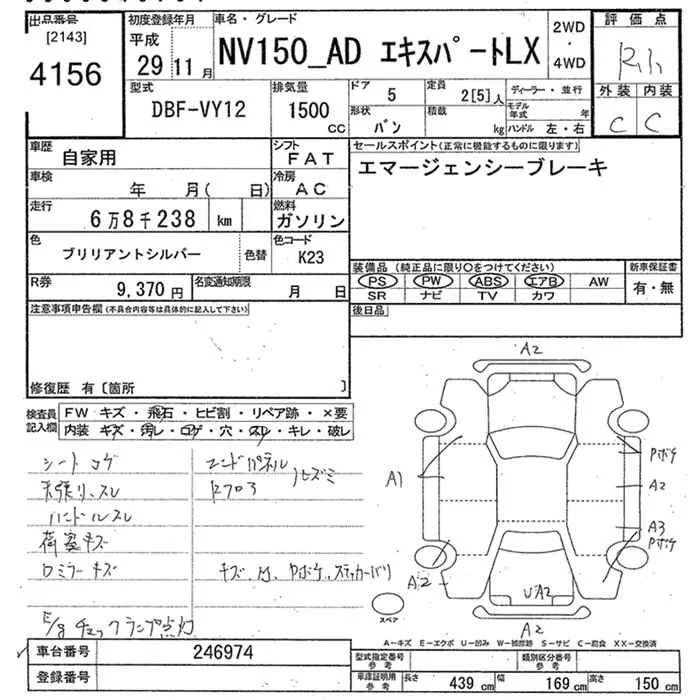 出品番号
[2143]
4156
初度登録年月
平成
29 11 月
車名・グレード
NV150_AD エキスパートLX
2WD
・
4WD
評価点
外装 内装
C C
型式
DBF-VY12
排気量
1500
CC
ドア 5
定員 2[5]人
ディーラー・並行
形状 バン
積載 kg
モデル年式 年
ハンドル 左・右
車歴 自家用
シフト FAT
車検 年 月( 日)
冷房 AC
走行 6万8千238 km
燃料 ガソリン
色 ブリリアントシルバー 色替
色コード K23
R券 9,370 円
名変通知期限 月 日
セールスポイント(正常に機能するものに限ります)
エマージェンシーブレーキ
装備品(純正品に限り○をつけてください)
新車保証書
PS PW ABS エアB AW
有・無
SR ナビ TV カワ
後日品
注意事項申告欄(不具合内容等は具体的に記入して下さい)
修復歴 有〔箇所 〕
検査員記入欄
FW キズ・飛石・ヒビ割・リペア跡・×要
内装 キズ・汚レ・コゲ・穴・スレ・キレ・破レ
シートコゲ
天張リ、スレ
ハンドルスレ
荷室キズ
ロミラーキズ
E/gチェックランプ点灯
エンドパネル
ハヒズミ
キズ、凹、Pボケ、ステッカーバリ
A2
A1
Pボケ
A2
A3
Pボケ
A2
UA2
A2
スペア
A-キズ E-エクボ U-凹み W-補修跡 S-サビ C-腐食 XX-交換済
車台番号 246974
登録番号
型式指定番号
参考
類別区分番号
参考
車庫証明用
参考
長さ 439 cm 幅 169 cm 高さ 150 cm